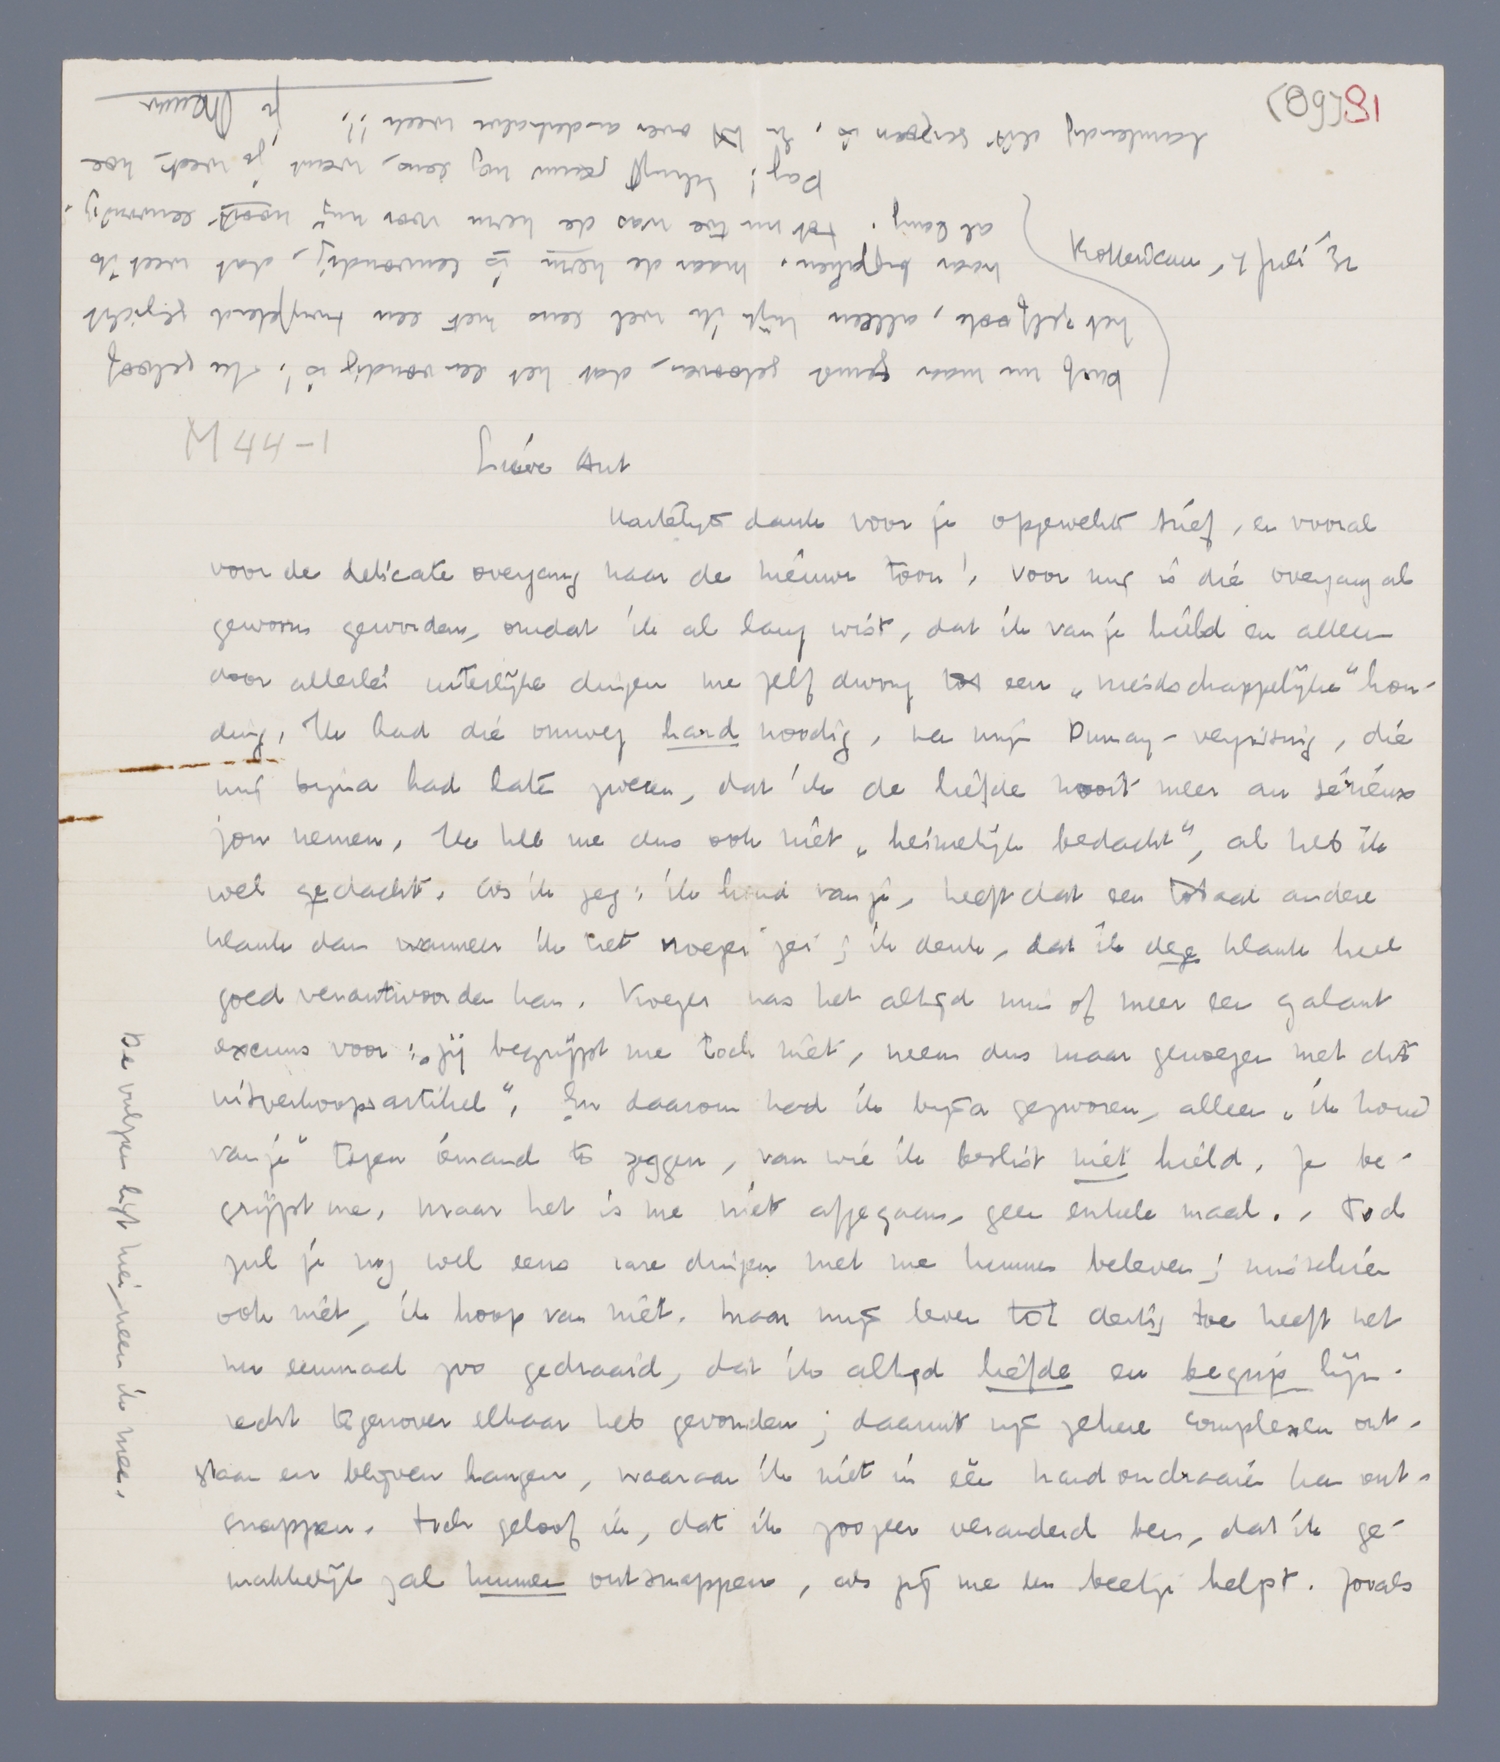 (89) 91
Rotterdam, 7 Juli '32
M 44-1
Lieve Ant
Hartelijk dank voor je opgewekte brief, en vooral
voor de delicate overgang naar de nieuwe toon! Voor mij is die overgang al
gewoon geworden, omdat ik al lang wist, dat ik van je hield en alleen
door allerlei uiterlijke dingen me zelf dwong tot een „vriendschappelijke" hou-
ding. Ik had die omweg hard noodig, na mijn Dumay-vergissing, die
mij bijna had laten zweren, dat ik de liefde nooit meer au sérieux
zou nemen. Ik heb me dus ook niet „heimelijk bedacht", al heb ik
wel gedacht. Als ik zeg: ik houd van je, heeft dat een totaal andere
klank dan wanneer ik het vroeger zei; ik denk, dat ik deze klank heel
goed verantwoorden kan. Vroeger was het altijd min of meer een galant
excuus voor: „jij begrijpt me toch niet, neem dus maar genoegen met dit
uitverkoopsartikel". En daarom had ik bijna gezworen, alleen „ik houd
van je" tegen iemand te zeggen, van wie ik beslist niet hield. Je be-
grijpt me, maar het is me niet afgegaan, geen enkele maal. Toch
zul je nog wel eens rare dingen met me kunnen beleven; misschien
ook niet, ik hoop van niet. Maar mijn leven tot dertig toe heeft het
nu eenmaal zoo gedraaid, dat ik altijd liefde en begrip lijn-
recht tegenover elkaar heb gevonden; daaruit zijn zekere complexen ont-
staan en blijven hangen, waaraan ik niet in één handomdraaien kan ont-
snappen. Toch geloof ik, dat ik zoozeer veranderd ben, dat ik ge-
makkelijk zal kunnen ontsnappen, als jij me een beetje helpt. Zooals
De vulpen ligt hier, neem ik mee.
Durf nu maar gerust gelooven, dat het eenvoudig is! Ik geloof
het zelf ook, alleen kijk ik wel eens met een twijfelend gezicht
naar bijzaken. Maar de kern is eenvoudig, dat weet ik
al lang. Tot nu toe was de kern voor mij nooit eenvoudig.
Dag! Schrijf gauw nog eens, want je weet, hoe
tamtendig dit seizoen is. En tot over anderhalve week!!
je Menno